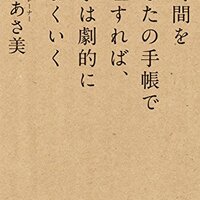 間を
たの手帳で
すれば、
は劇的に
くいく
ーナー
あさ美